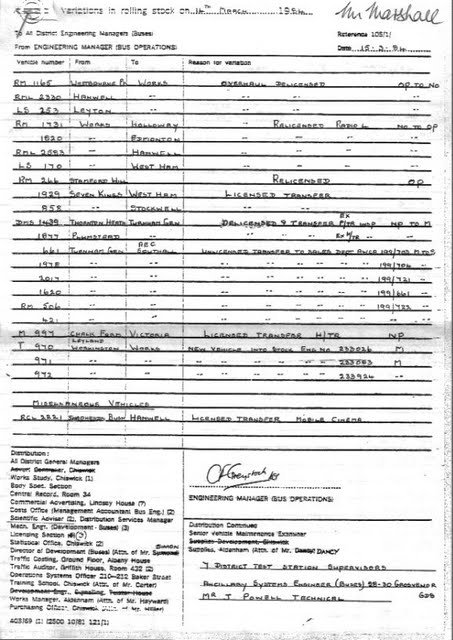 Variations in rolling stock on 14th March 1984
Mr Marshall
To All District Engineering Managers (Buses)
Reference 105/1/
From ENGINEERING MANAGER (BUS OPERATIONS)
Date 15-3-84
Vehicle number From To Reason for variation
RM 1165 Westbourne Pk Works Overhaul Delicensed OP to NO
RML 2330 Hanwell -..- -..- -..-
LS 253 Leyton -..- -..- -..-
RM 1731 Works Holloway Relicensed NO to OP
1820 -..- Edmonton -..- -..-
-..- Hanwell -..- -..-
LS 170 -..- West Ham -..- -..-
RM 266 Stamford Hill Relicensed OP
1929 Seven Kings West Ham Licensed Transfer
858 -..- Stockwell -..- -..-
DMS 1439 Thornton Heath Turnham Grn Delicensed & Transfer Ex NP to M
1877 Plumstead -..- -..- -..-
661 Turnham Grn Unlicensed Transfer to Sales Dept
1978 -..- -..- -..- 199/706 -..-
2017 -..- -..- -..-
1620 -..- -..- -..- 199/661 -..-
RM 506 -..- -..- -..- 199/722 -..-
421 -..- -..- -..-
M 997 Chalk Farm Victoria Licensed Transfer H/TR NP
T 970 Leyland Workington Works New Vehicle into Stock Eng No 233026 M
971 -..- -..- -..- 233083 M
972 -..- -..- -..- 233924 -..-
Miscellaneous Vehicles
RCL 2221 Shepherds Bush Hanwell Licensed Transfer Mobile Cinema
Distribution:
All District General Managers
Advert Controller, Chiswick
Works Study, Chiswick (1)
Body Spec. Section
Central Record, Room 34
Commercial Advertising, Lindsey House (7)
Costs Office (Management Accountant Bus Eng.) (2)
Scientific Adviser (2), Distribution Services Manager
Mech. Engr. (Development - Buses) (3)
Licensing Section
Statistical Office, Chiswick (2)
Director of Development (Buses) (Attn. of Mr.
Traffic Costing, Ground Floor, Albany House
Traffic Auditor, Griffith House, Room 432 (2)
Operations Systems Officer 210-212 Baker Street
Training School, Chiswick (Attn. of Mr. Carter)
Works Manager, Aldenham (Attn. of Mr. Hayward)
Purchasing Officer, Chiswick
ENGINEERING MANAGER (BUS OPERATIONS)
Distribution Continued
Senior Vehicle Maintenance Examiner
Supplies, Aldenham (Attn. of Mr. Dancy) DANCY
7 District Test Station Supervisors
Ancillary Systems Engineer (Buses) 28-30 Grosvenor GDS
Mr T Powell Technical